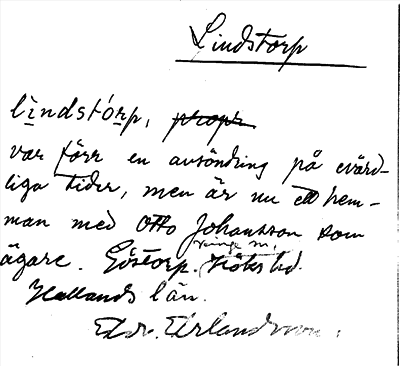 Lindstorp
lìndstórp, propr
var förr en avsöndring på evärd-
liga tider, men är nu ett hem-
man med Otto Johansson som
ägare. Göstorp. Höks hd.
Hallands län.
Edv. Erlandsson.